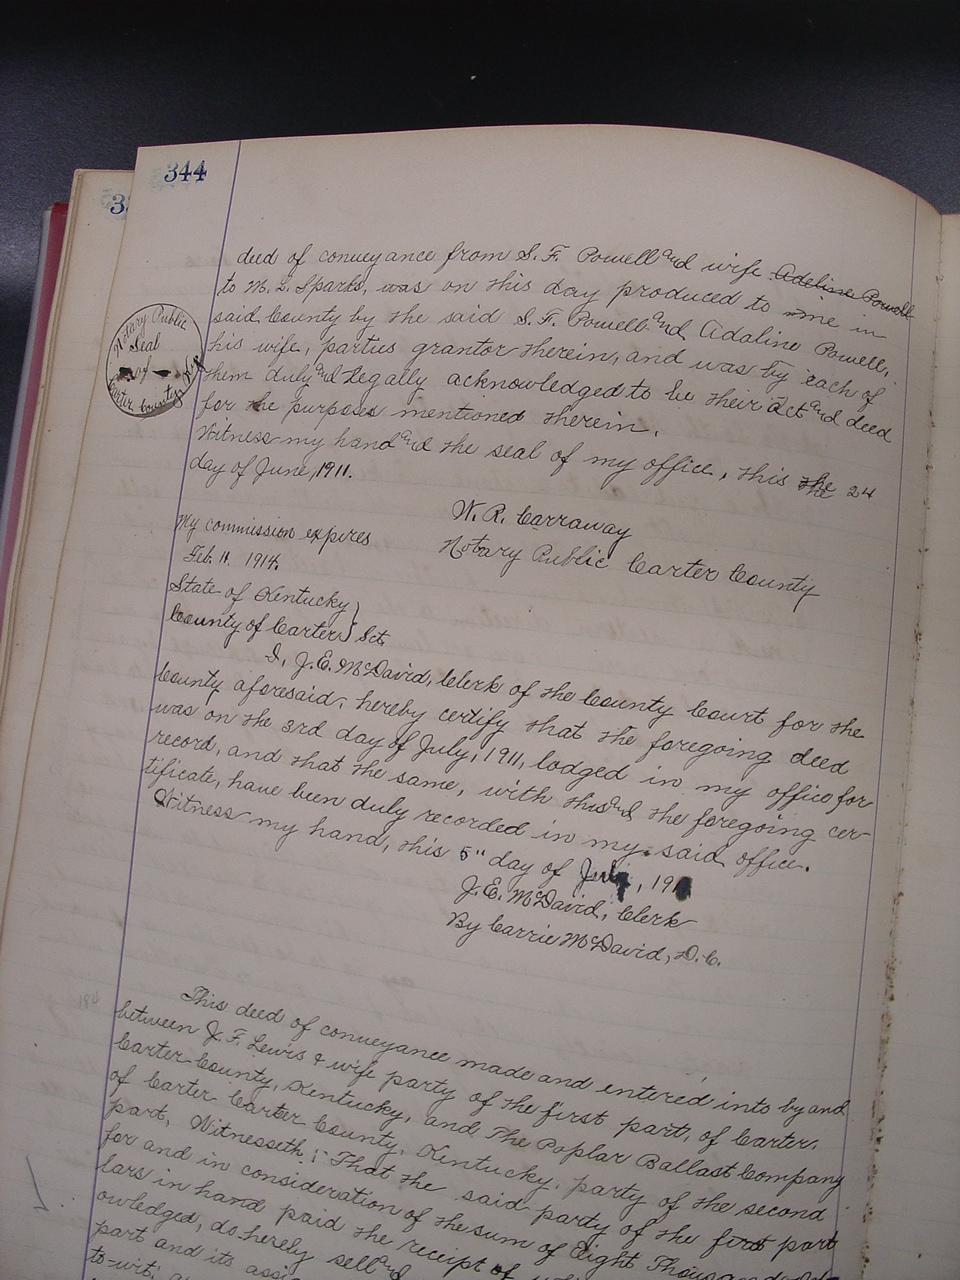 344
3
deed of conveyance from S. F. Powell and wife Adeline Powell
to M. L. Sparks, was on this day produced to me in
said County by the said S. F. Powell and Adaline Powell,
his wife, parties grantor therein, and was by each of
them duly and legally acknowledged to be their act and deed
for the purposes mentioned therein.
Witness my hand and the seal of my office, this the 24
day of June, 1911.
Notary Public
Seal
of
Carter County, Ky
W. R. Carraway
Notary Public Carter County
My commission expires
Feb. 11. 1914.
State of Kentucky
County of Carter } Sct.
I, J. E. McDavid, Clerk of the County Court for the
County aforesaid, hereby certify that the foregoing deed
was on the 3rd day of July, 1911, lodged in my office for
record, and that the same, with this and the foregoing cer-
tificate, have been duly recorded in my said office.
Witness my hand, this 5" day of July, 191
J. E. McDavid, Clerk
By Carrie McDavid, D. C.
This deed of conveyance made and entered into by and
between J. F. Lewis & wife party of the first part, of Carter
Carter County, Kentucky, and The Poplar Ballast Company
of Carter Carter County, Kentucky, party of the second
part, Witnesseth: That the said party of the first part
for and in consideration of the sum of Eight Thousand Dol-
lars in hand paid the receipt of
owledged, do hereby sell and
part and its
to-wit: